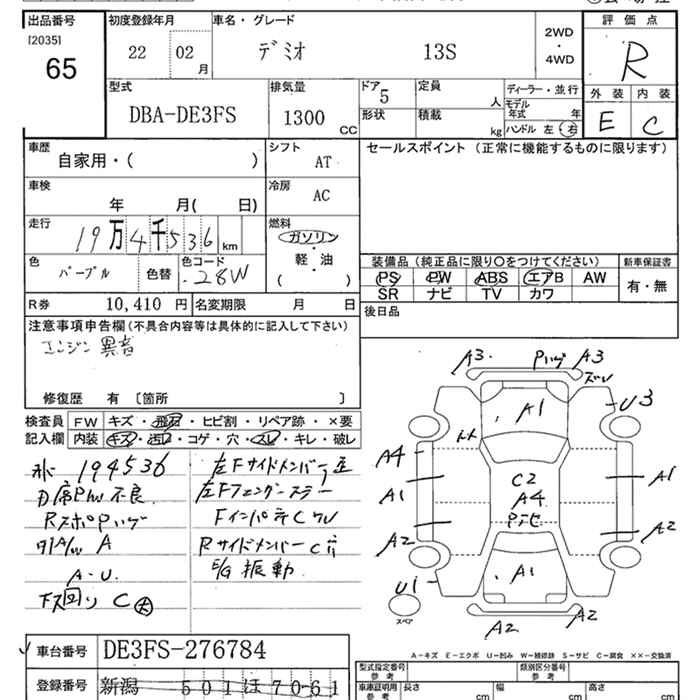 出品番号 初度登録年月 車名・グレード 評価点
[2035]
65 22 02 月 デミオ 13S 2WD・4WD R
型式 排気量 ドア 定員 ディーラー・並行 外装 内装
DBA-DE3FS 1300 CC 5 人 モデル年式 年 E C
形状 積載 kg ハンドル 左・右
車歴 シフト セールスポイント (正常に機能するものに限ります)
自家用・( ) AT
車検 冷房
年 月( 日) AC
走行 燃料
19万4千536 km ガソリン
色 色コード 軽・油
パープル 色替 28W ( )
装備品 (純正品に限り○をつけてください) 新車保証書
PS PW ABS エアB AW 有・無
SR ナビ TV カワ
R券 10,410 円 名変期限 月 日 後日品
注意事項申告欄 (不具合内容等は具体的に記入して下さい)
エンジン異音
修復歴 有 〔箇所 〕
検査員 FW キズ・飛石・ヒビ割・リペア跡・×要
記入欄 内装 キズ・汚レ・コゲ・穴・スレ・キレ・破レ
194536 左Fサイドメンバー
P/W不良 左Fフェンダーステー
RスポPハゲ FインパネCワレ
A RサイドメンバーC
A-U E/G振動
下ス回り C 大
A3 Pハゲ A3
ズレ
A1 U3
A4
A1 C2 A1
A4
A2 A2
U1 A1
スペア
A2 A2
A−キズ E−エクボ U−凹み W−補修跡 S−サビ C−腐食 ××−交換済
車台番号 DE3FS-276784
登録番号 新潟 501 ほ 70-61
型式指定番号 参考 類別区分番号 参考
車庫証明用 参考 長さ cm 幅 cm 高さ cm